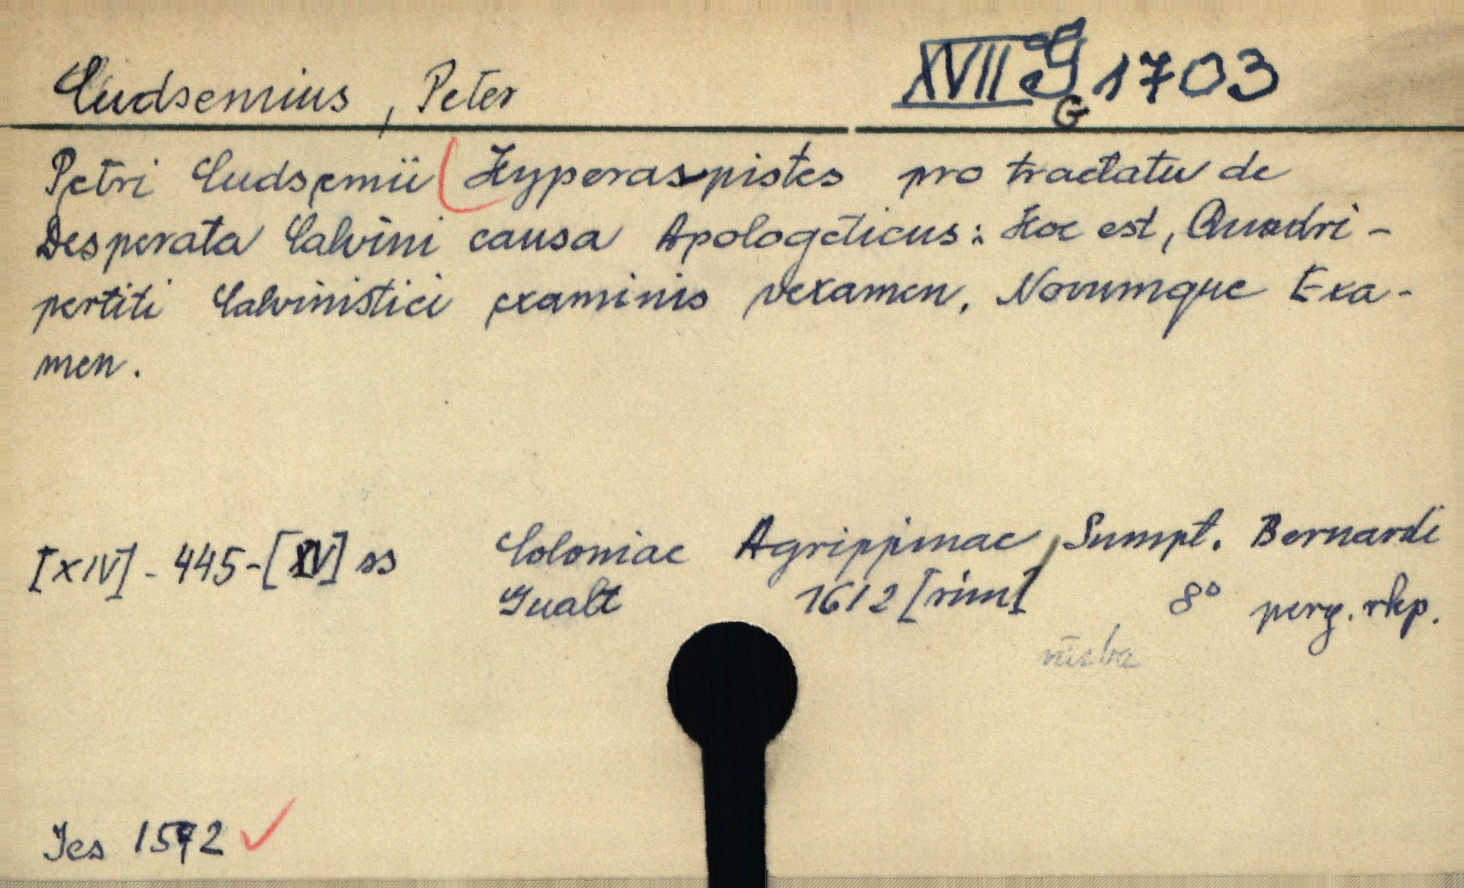 Cudsemius, Peter
XVII G 1703
G
Petri Cudsemii Hyperaspistes pro tractatu de
Desperata Calvini causa Apologeticus: Hoc est, Quadri-
pertiti Calvinistici examinis vexamen, Novumque Exa-
men.
[XIV]-445-[XV] ss Coloniae Agrippinae, Sumpt. Bernardi
Gualt 1612 [rim] 8° perg. rkp.
Jes 1572